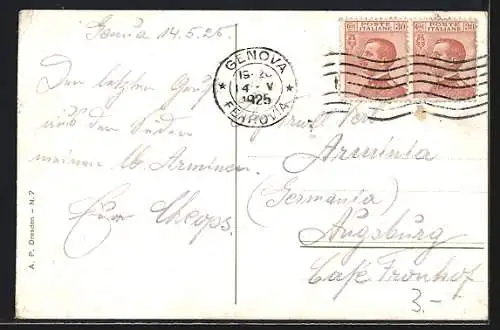 Genua 14.5.25.
Den letzten Gruß
aus dem Süden
meinen lb. Arminen
Euer Cheops.
GENOVA
19-20
14 V
1925
FERROVIA
POSTE ITALIANE
30
POSTE ITALIANE
30
Arminia
(Germania)
Augsburg
Café Fronhof
3.-
A. P. Dresden – N. 7